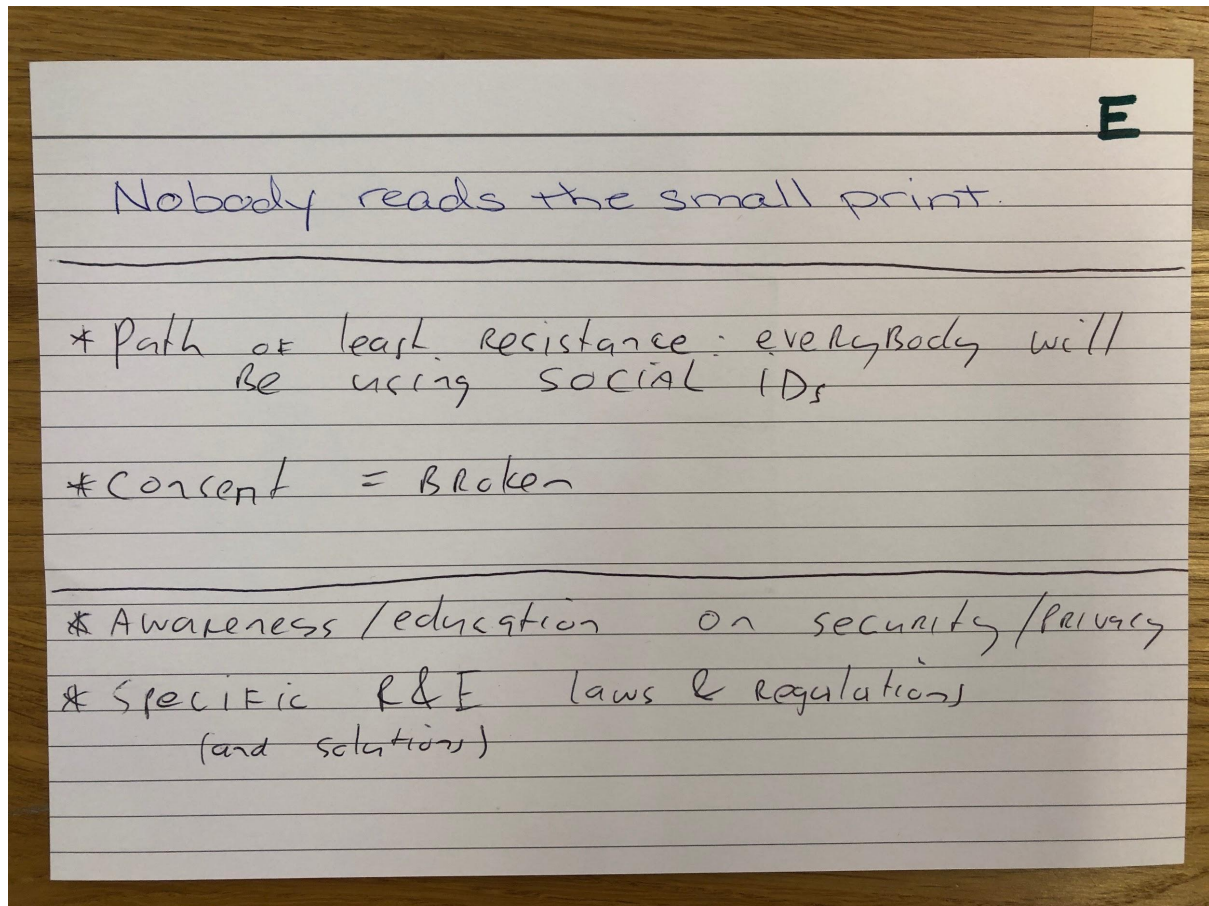 E
Nobody reads the small print.
* Path of least Resistance: eveRyBody will
Be using SOCIAL IDs
* Consent = BRoken
* Awareness / education on security / PRivacy
* Specific R&E laws & Regulations
(and solutions)